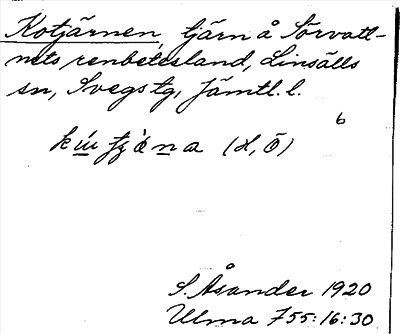 Kotjärnen, tjärn å Sörvatt-
nets renbetesland, Linsälls
sn, Svegs tg, Jämtl. l.
6
(d, ō)
S. Åsander 1920
Ulma 755:16:30